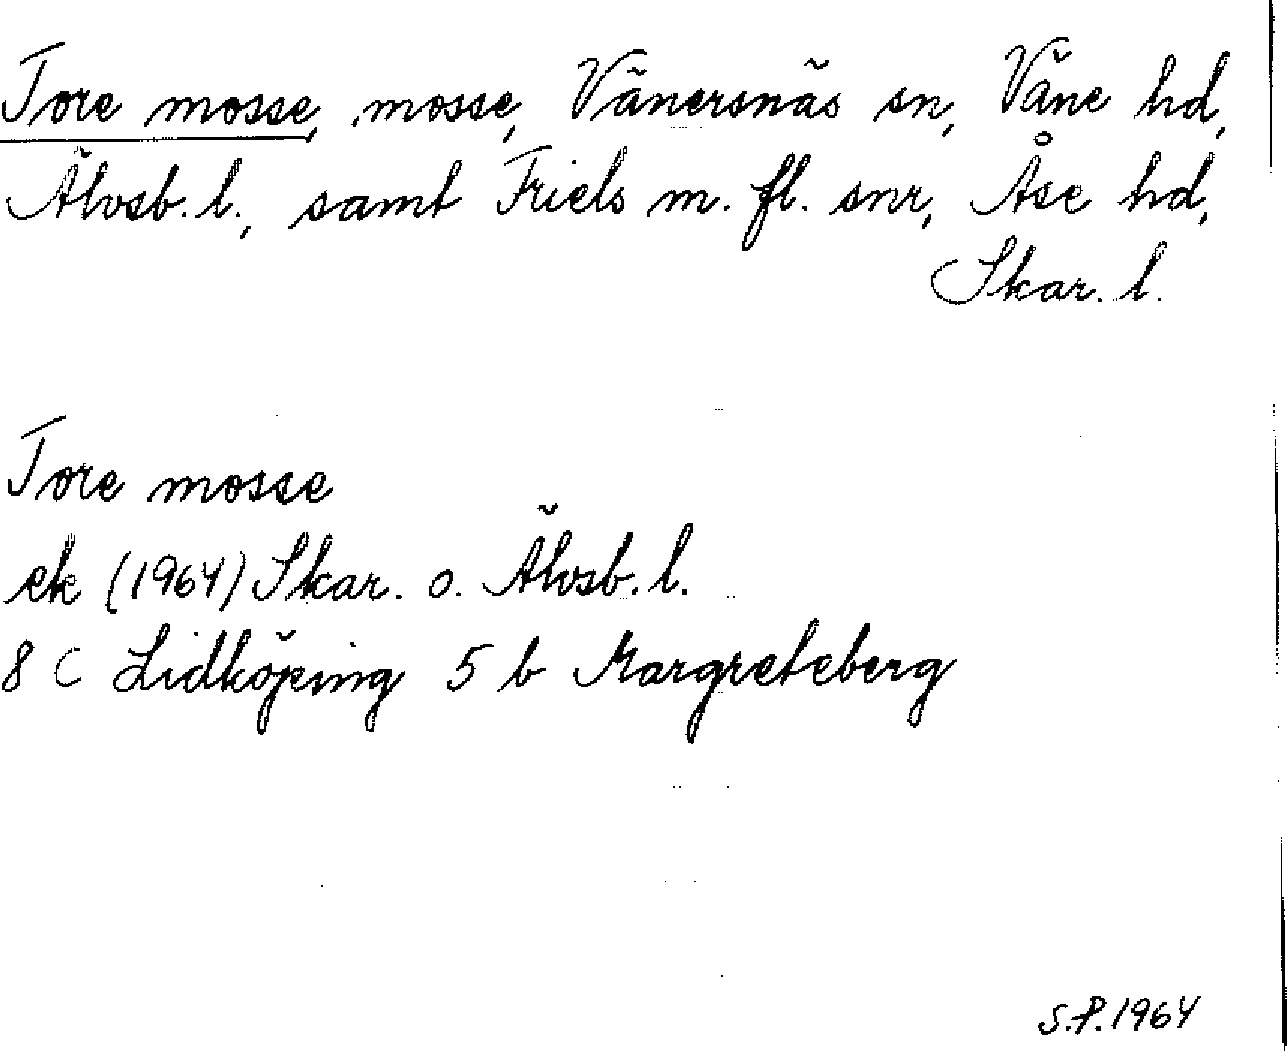 Tore mosse, mosse, Vänersnäs sn, Väne hd,
Älvsb. l., samt Friels m. fl. snr, Åse hd,
Skar. l.
Tore mosse
ek (1964) Skar. o. Älvsb. l.
8 C Lidköping 5 b Margreteberg
S.P. 1964